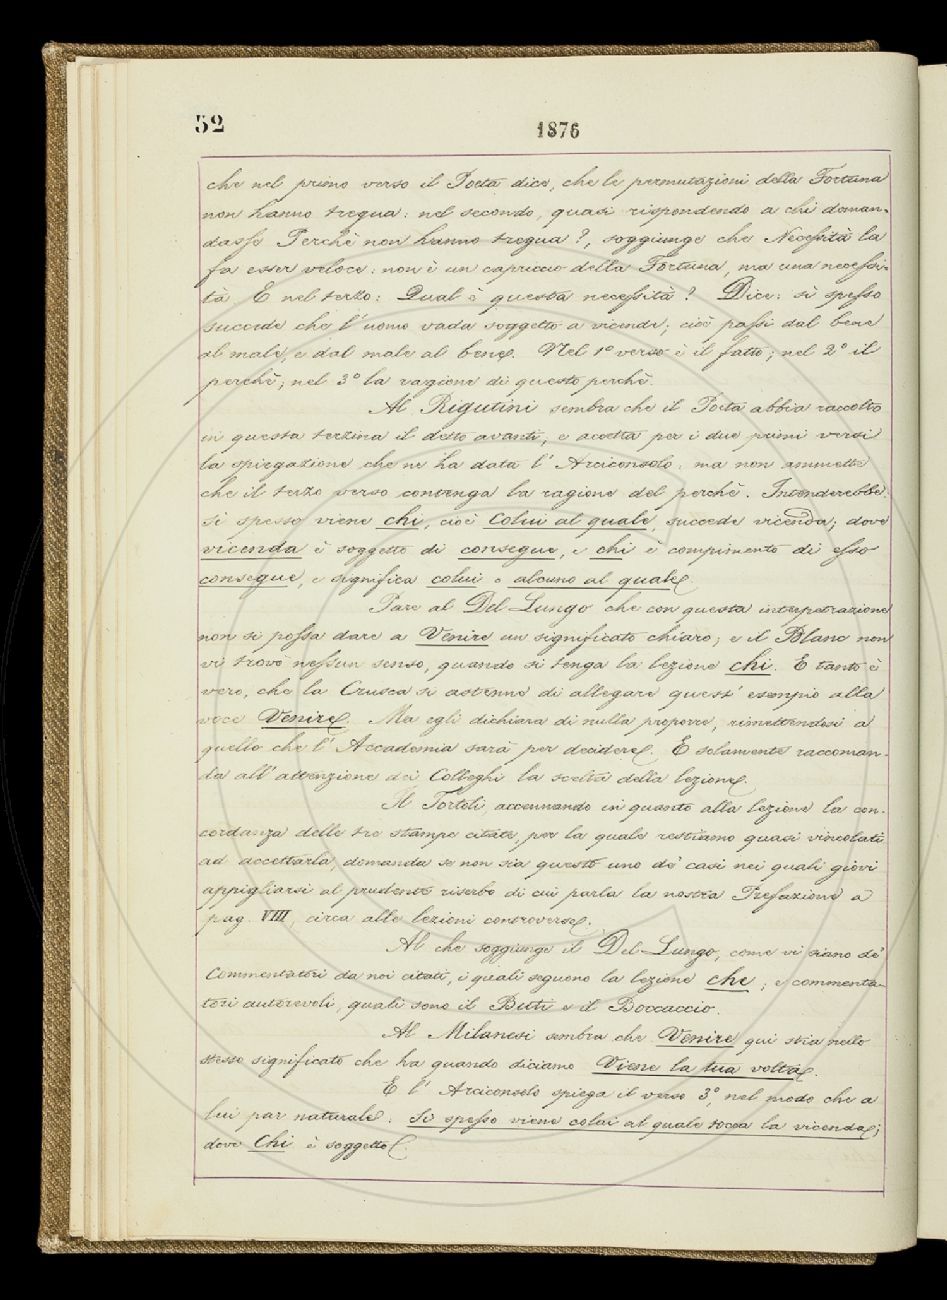 52
1876
che nel primo verso il Poeta dice, che le permutazioni della Fortuna
non hanno tregua: nel secondo, quasi rispondendo a chi doman-
dasse Perchè non hanno tregua?, soggiunge che Necessità la
fa esser veloce: non è un capriccio della Fortuna, ma una necessi-
tà. E nel terzo: Qual è questa necessità? Dice: sì spesso
succede che l'uomo vada soggetto a vicende; cioè passi dal bene
al male, e dal male al bene. Nel 1º verso è il fatto; nel 2º il
perchè; nel 3º la ragione di questo perchè.
Al Rigutini sembra che il Poeta abbia raccolto
in questa terzina il detto avanti, e accetta per i due primi versi
la spiegazione che ne ha data l'Arciconsolo: ma non ammette
che il terzo verso contenga la ragione del perchè. Intenderebbe:
sì spesso viene chi, cioè colui al quale, succede vicenda; dove
vicenda è soggetto di consegue, e chi è compimento di esso
consegue, e significa colui o alcuno al quale.
Pare al Del Lungo che con questa interpetrazione
non si possa dare a Venire un significato chiaro; e il Blanc non
vi trovò nessun senso, quando si tenga la lezione chi. E tanto è
vero, che la Crusca si astenne di allegare quest'esempio alla
voce Venire. Ma egli dichiara di nulla proporre, rimettendosi a
quello che l'Accademia sarà per decidere. E solamente raccoman-
da all'attenzione dei Colleghi la scelta della lezione.
Il Tortoli, accennando in quanto alla lezione la con-
cordanza delle tre stampe citate, per la quale restiamo quasi vincolati
ad accettarla, domanda se non sia questo uno de' casi nei quali giovi
appigliarsi al prudente riserbo di cui parla la nostra Prefazione a
pag. VIII, circa alle lezioni controverse.
Al che soggiunge il Del Lungo, come vi siano de'
Commentatori da noi citati, i quali seguono la lezione che; e commenta-
tori autorevoli, quali sono il Buti e il Boccaccio.
Al Milanesi sembra che Venire qui stia nello
stesso significato che ha quando diciamo Viene la tua volta.
E l'Arciconsolo spiega il verso 3º, nel modo che a
lui par naturale: Sì spesso viene colui al quale tocca la vicenda;
dove Chi è soggetto.